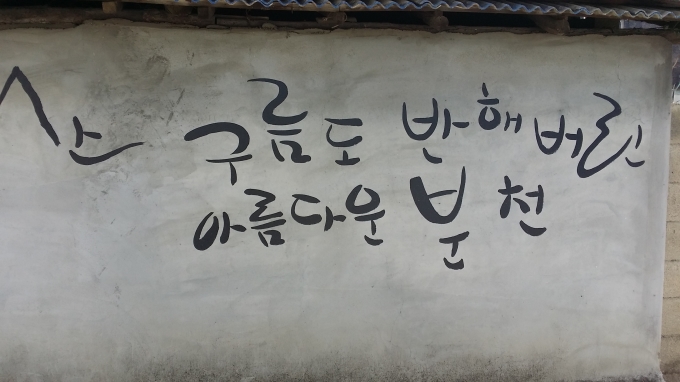 구름도 반해버린
아름다운 분천